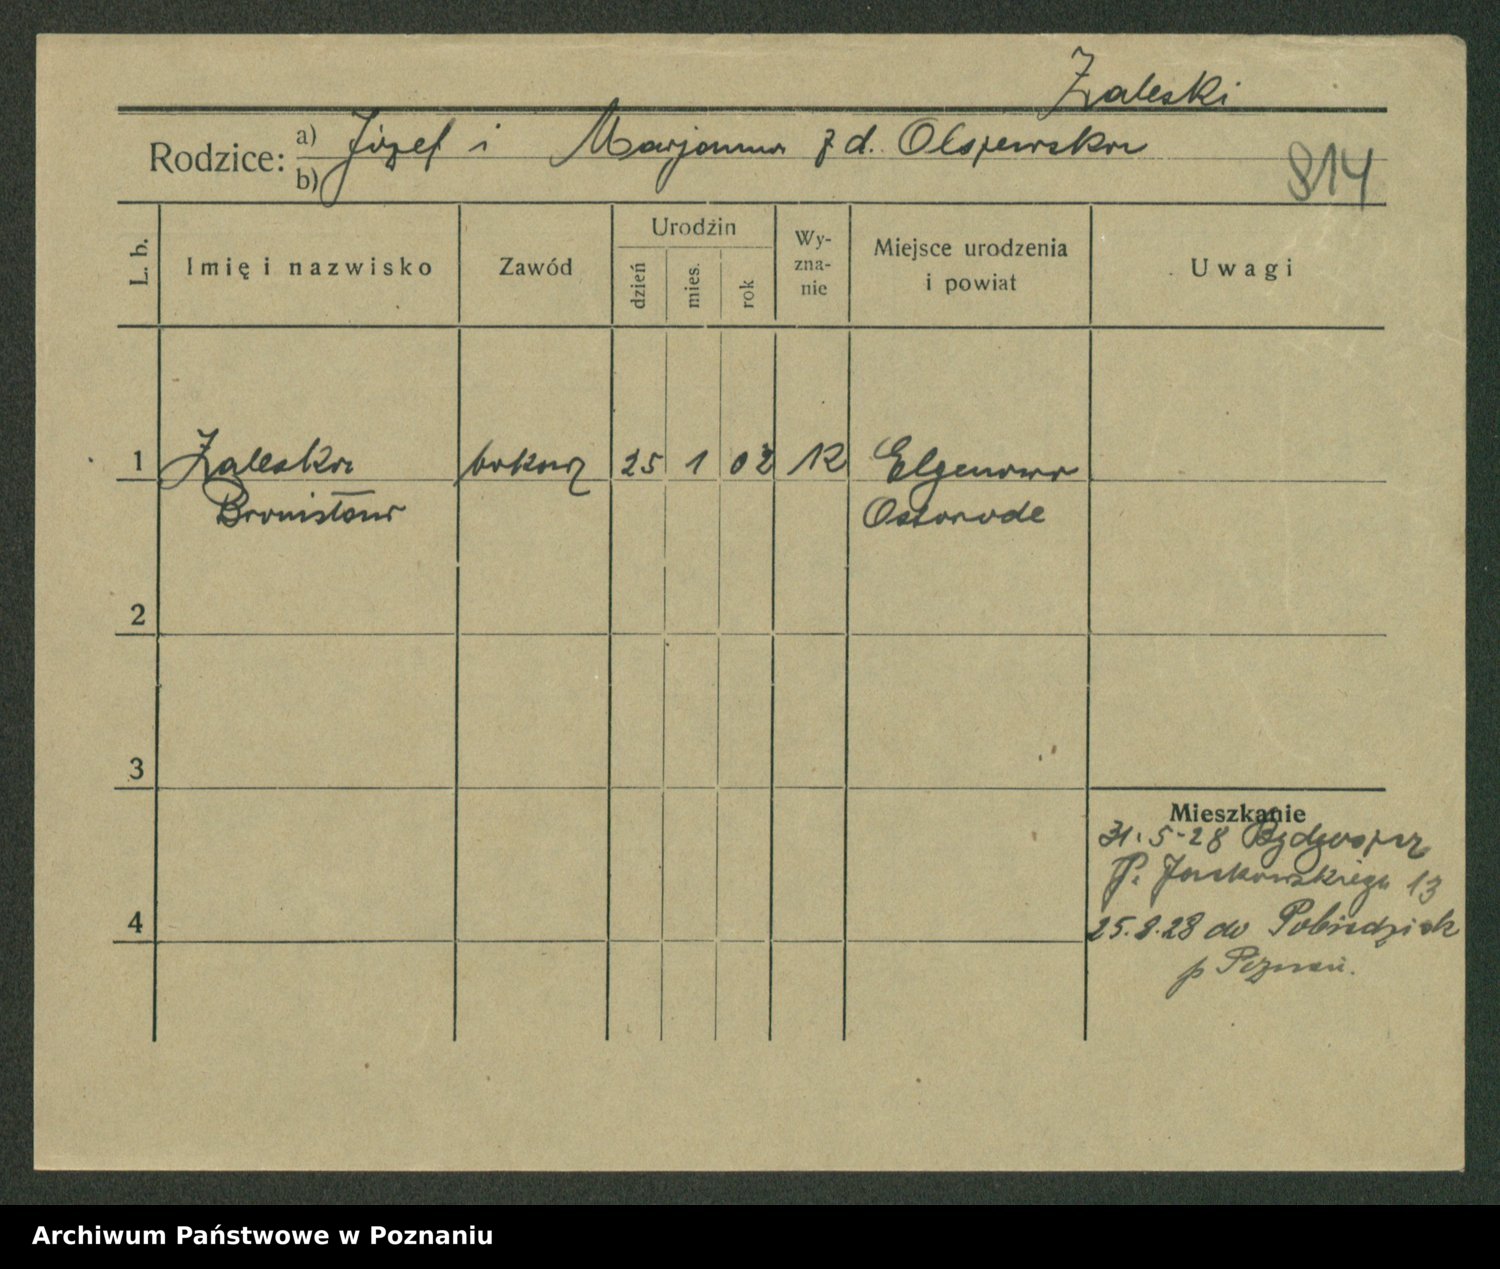 Zaleski
Rodzice: a) Józef i Marjanna z d. Olszewska
b)
814
L. b.
Imię i nazwisko
Zawód
Urodzin
dzień
mies.
rok
Wy-
zna-
nie
Miejsce urodzenia
i powiat
Uwagi
1 Zaleski 25 1 02 K Elgenowo
Bronisław Osterode
2
3
4
Mieszkanie
31.5-28 Bydgoszcz
Jaskowskiego 13
25.8.28 do Pobiedzisk
p Poznań.
Archiwum Państwowe w Poznaniu